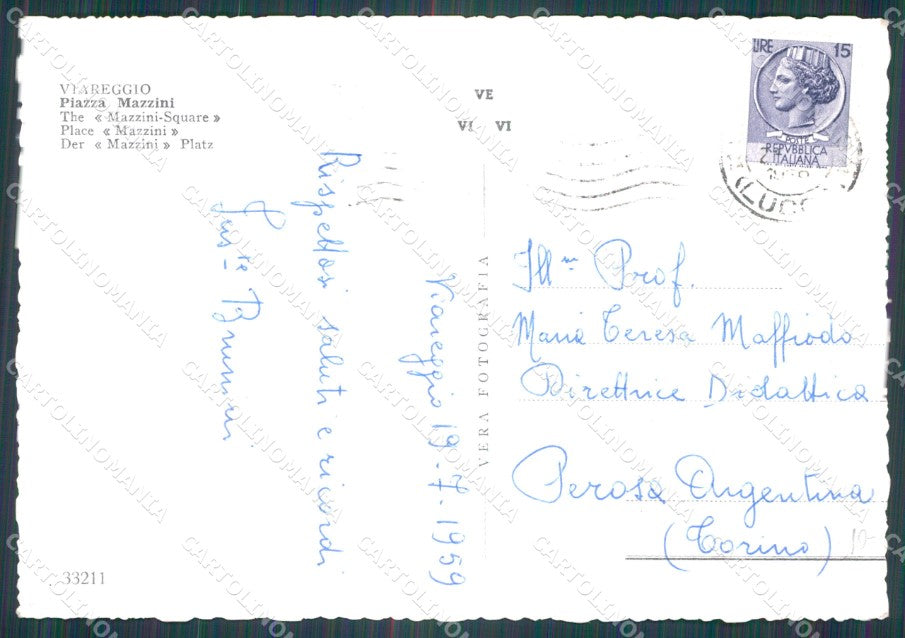 VIAREGGIO
Piazza Mazzini
The « Mazzini-Square »
Place « Mazzini »
Der « Mazzini » Platz
VE
VI VI
LIRE 15
POSTE
REPVBBLICA
ITALIANA
(LUCC
Viareggio 19-7-1959
Rispettosi saluti e ricordi
VERA FOTOGRAFIA
Ill.mo Prof.
Maria Teresa Maffiodo
Direttrice Didattica
Perosa Argentina
(Torino)
33211
CARTOLINOMANIA